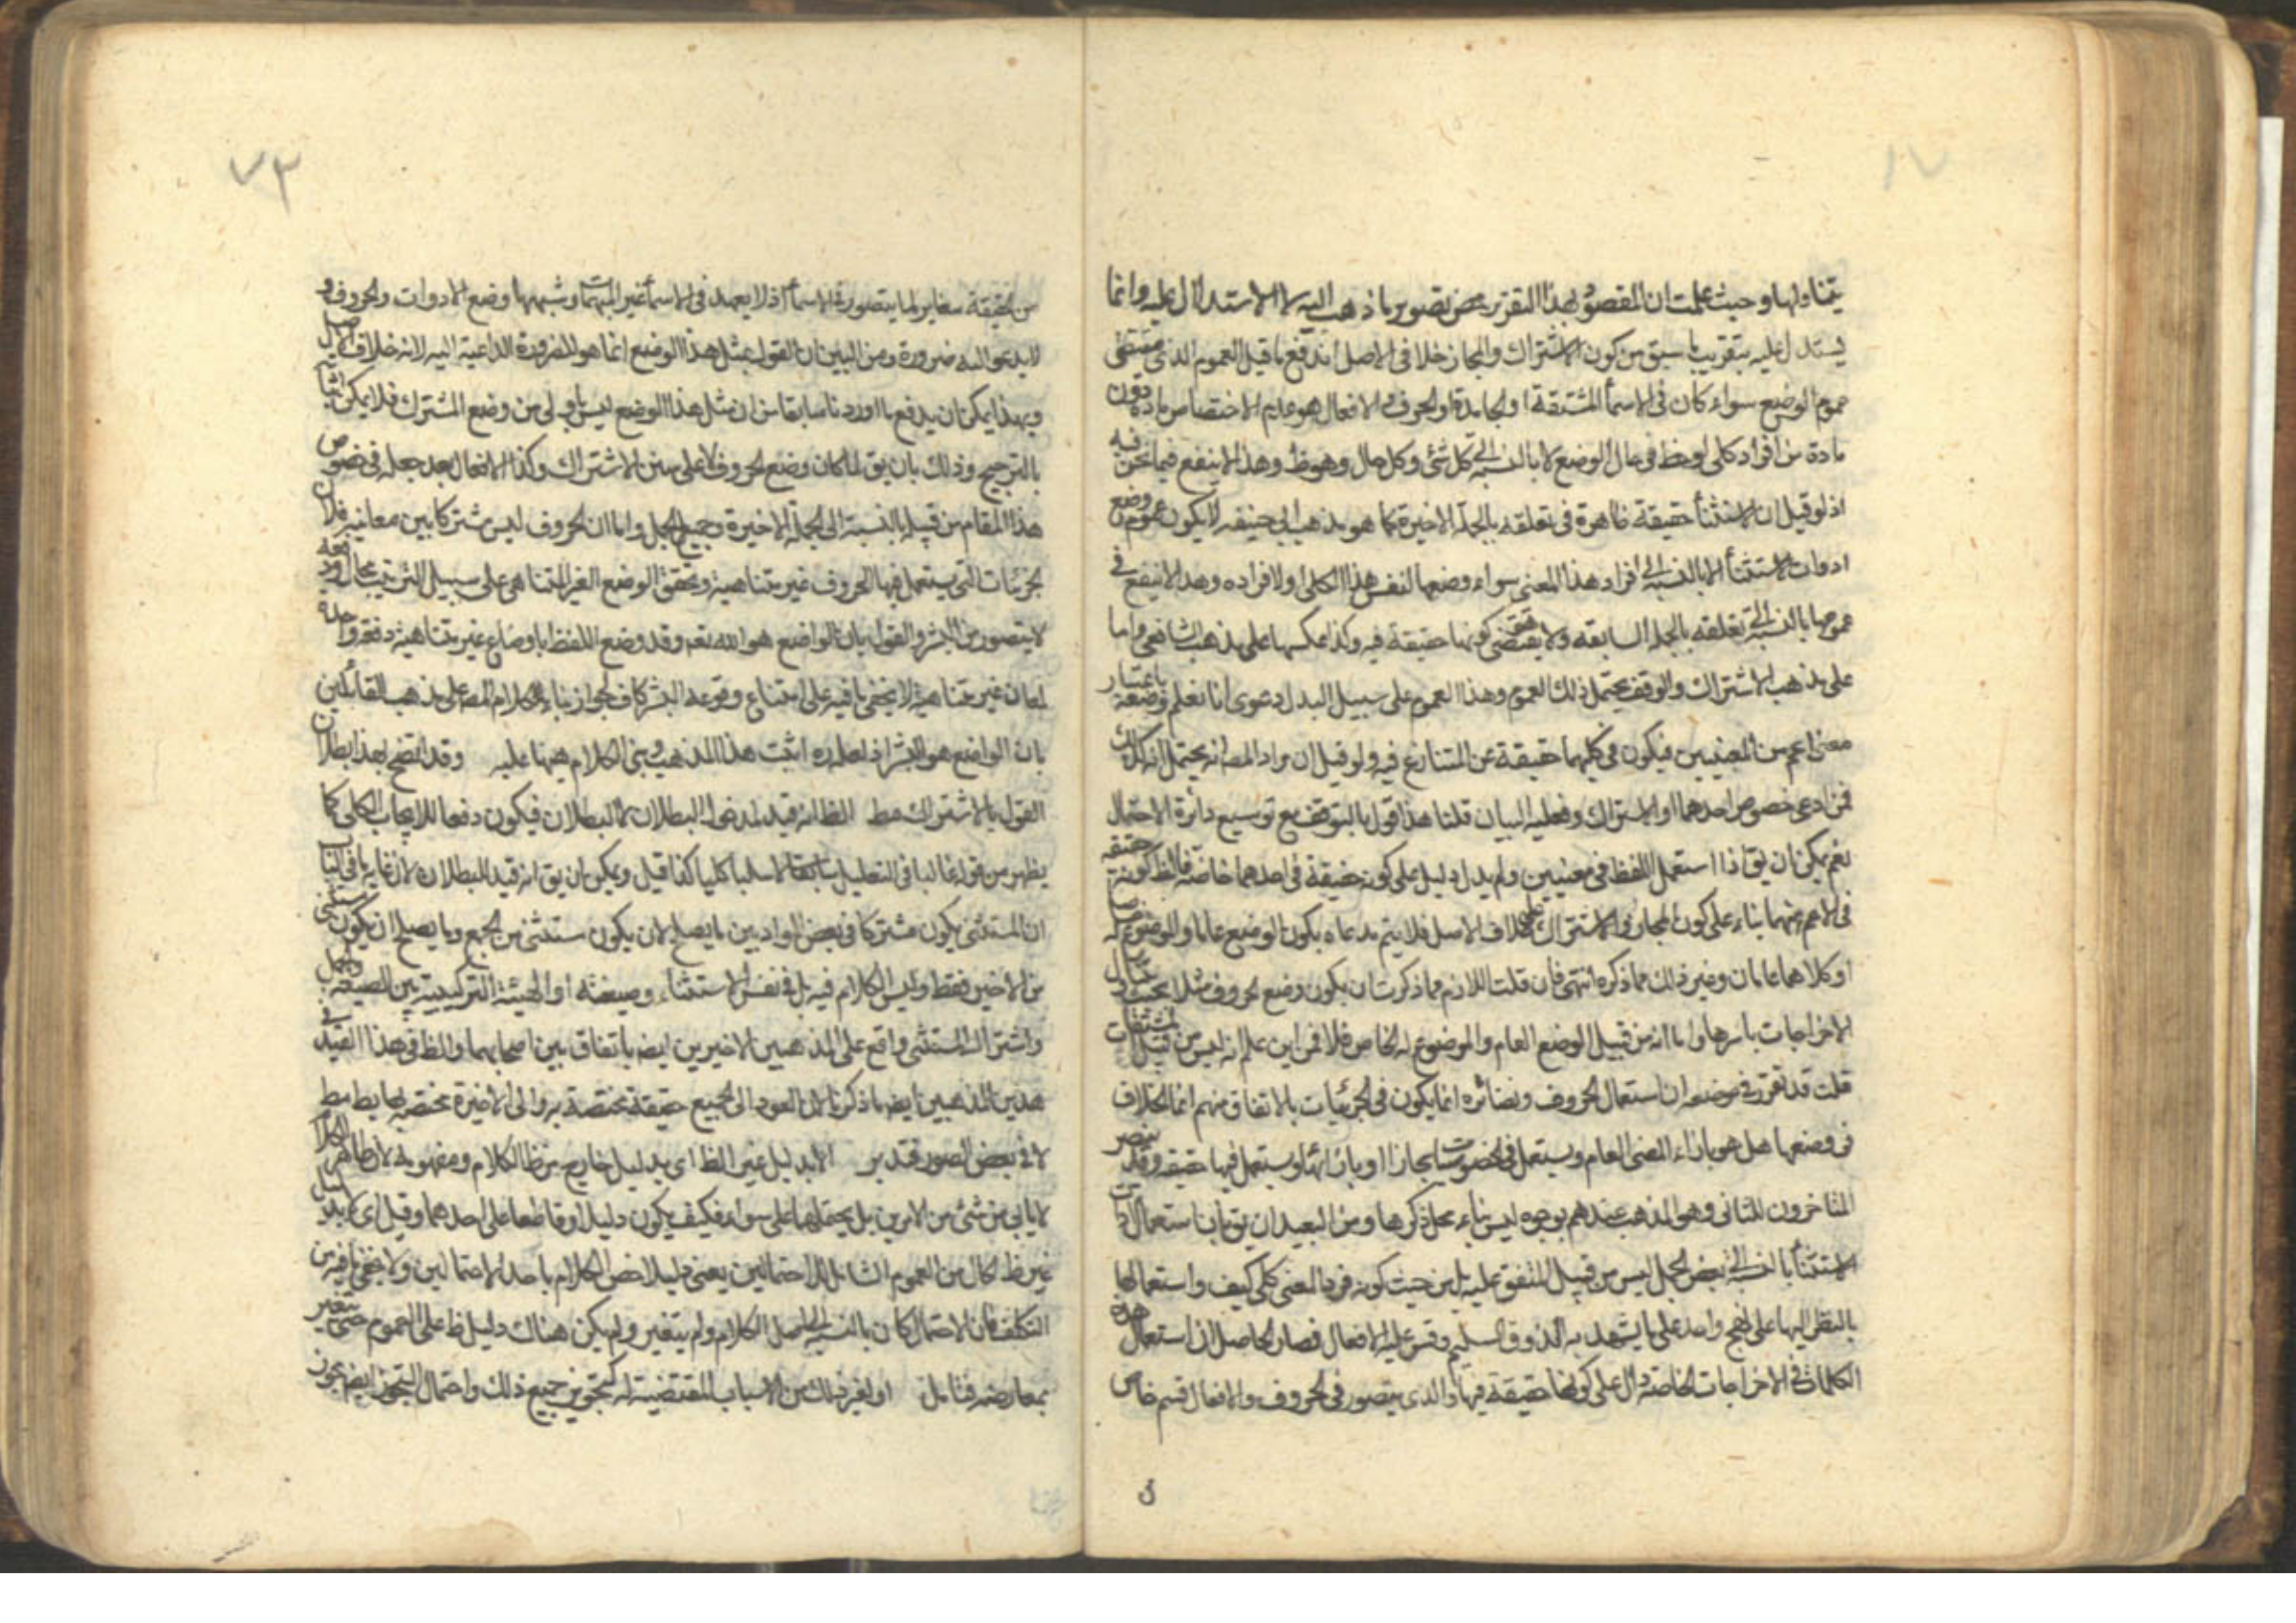 يتناولها وحيث علمت ان المقصود بهذا التقرير محض تصوير ما ذهب اليه لا الاستدلال عليه وانما
يستدل عليه بتقريب ما سبق من كون الاشتراك والمجاز خلاف الاصل اندفع ما قيل العموم الذي مقتضى
عموم الوضع سواء كان في الاسماء المشتقة او الجامدة او الحروف والافعال هو عدم الاختصاص مادة دون
مادة من افراد كلى لوحظ في حال الوضع لا بالنسبة الى كل شئ وكل حال وهو ظ وهذا لا ينفع فيما نحن فيه
اذ لو قيل ان الاستثناء حقيقة ظاهرة في تعلقه بالجملة الاخيرة كما هو مذهب ابى حنيفه لا يكون عموم وضع
ادوات الاستثناء الا بالنسبة الى افراد هذا المعنى سواء وضعها لنفس هذا الكلى او لافراده وهذا لا ينفع في
عمومها بالنسبة الى تعلقه بالجمله السابقه ولا يقتضى كونها حقيقة فيه وكذا عكسها على مذهب الشافعى واما
على مذهب الاشتراك والوقف يحتمل ذلك العموم وهذا العموم على سبيل البدل دعوى انا نعلم وضعه باعتبار
معنى اعم من المعنيين فيكون في كليهما حقيقة عن المتنازع فيه ولو قيل ان مراد المصـ انه يحتمل انه كذلك
فمن ادعى خصوص احدهما او الاشتراك وفعليه البيان قلنا هذا قول بالتوقف مع توسيع دائرة الاحتمال
نعم يمكن ان يق اذا استعمل اللفظ في معنيين ولم يدل دليل على كونه حقيقة في احدهما خاصة فالظ كونه حقيقه
في الاعم منهما بناء على كون المجاز والاشتراك على خلاف الاصل فلا يتم مدعاه بكون الوضع عاما والموضوع له خاص
او كلاهما عامان وغير ذلك مما ذكره انتهى فان قلت اللازم مما ذكرت ان يكون وضع الحروف مثلا بحيث يتناول
الاخراجات باسرها واما انه من قبيل الوضع العام والموضوع له الخاص فلا فمن اين علم انه ليس من قبيل المشتقات
قلت قد تقرر في موضعه ان استعمال الحروف ونضائره انما يكون في الجزئيات بالاتفاق منهم انما الخلاف
في وضعها هل هو بازاء المعنى العام ويستعمل في الخصوصيات مجازا او بازائها ويستعمل فيها حقيقه وقد نصر
المتاخرون للثانى وهو المذهب عندهم بوجوه ليس بناء محل ذكرها ومن البعيد ان يق بان استعمال ادات
الاستثناء بالنسبة الى بعض الجمل ليس من قبيل المتفق عليه بل من حيث كونه فردا لمعنى كلى كيف واستعمالها
بالنظر اليها على نهج واحد على ما يشهد به الذوق السليم وقس عليه الافعال فصار الحاصل ان استعمال هذه
الكلمات في الاخراجات الخاصة دال على كونها حقيقة فيها والذى يتصور في الحروف والافعال قسم خاص
ن
٧٣
من الحقيقة مغاير لما يتصور في الاسماء اذ لا يعهد في الاسماء غير المبهمات وشبهها وضع الادوات والحروف و
لا يدعو اليه ضرورة ومن البين ان القول بمثل هذا الوضع انما هو للضرورة الداعية اليه لانه خلاف الاصل
وبهذا يمكن ان يدفع ما اوردنا سابقا من ان مثل هذا الوضع ليس باولى من وضع المشترك فلا يمكن
بالترجيح وذلك بان يق لما كان وضع الحروف لا على سنن الاشتراك وكذا الافعال بعد جعله في خصوص
هذا المقام من قبيله بالنسبة الى الجملة الاخيرة وجميع الجمل واما ان الحروف ليس مشتركا بين معانيه فلان
الجزئيات التى يستعمل فيها الحروف غير متناهية وتحقق الوضع الغير المتناهى على سبيل الترتيب محال ودفعه
لا يتصور من البشر والقول بان الواضع هو الله تعه وقد وضع اللفظ باوضاع غير متناهية دفعة واحدة
لمعان غير متناهية لا يخفى ما فيه على امتناع وقوعه البشر كاف لجواز بناء الكلام المصـ على مذهب القائلين
بان الواضع هو البشر اذ لعله ره اثبت هذا المذهب وبنى الكلام ههنا عليه وقد اتضح بهذا بطلان
القول بالاشتراك مط الظ انه قيد لدخوله البطلان لا لبطلان فيكون دفعا للايجاب الكلى كما
يظهر من قوله غالبا في التعليل سابقا لا سلبا كليا كما قيل ويمكن ان يق انه قيد للبطلان لان غايه ما في الباب
ان المستثنى يكون مشتركا في بعض المواد بين ما يصلح لان يكون مستثنى من الجميع وما يصلح ان يكون مستثنى
من الاخير فقط وليس الكلام فيه بل في نفس الاستثناء وصيغته او الهيئة التركيبية بين الصيغه والجمل
واشتراك المستثنى واقع على المذهبين الاخيرين ايضـ باتفاق بين اصحابهما والظ في هذا القيد في
هذين المذهبين ايضـ ما ذكرنا لان العود الى الجميع حقيقة مختصة به والى الاخيرة مختصه بها بط مط
لا في بعض الصور فتدبر الا بدليل غير الظ اى بدليل خارج من ظ الكلام ومفهومه لان ظاهر الكلام
لا يابى من شئ من الامرين بل يحتملها على سواء فكيف يكون دليلا وقاطعا على احدهما وقيل اى لا بدليل
غير ظ كال من العموم الشامل للاحتمالين يعنى دليلا خص الكلام باحد الاحتمالين ولا يخفى ما فيه من
التكلف فان الاحتمال كان بالنسبة الى اصل الكلام ولم يتغير ولم يكن هناك دليل ظ على العموم حتى يتغير
بمعارضه فتامل او لغير ذلك من الاسباب المقتضية له كتجويز جميع ذلك واحتمال التجوز ايضـ يجوز